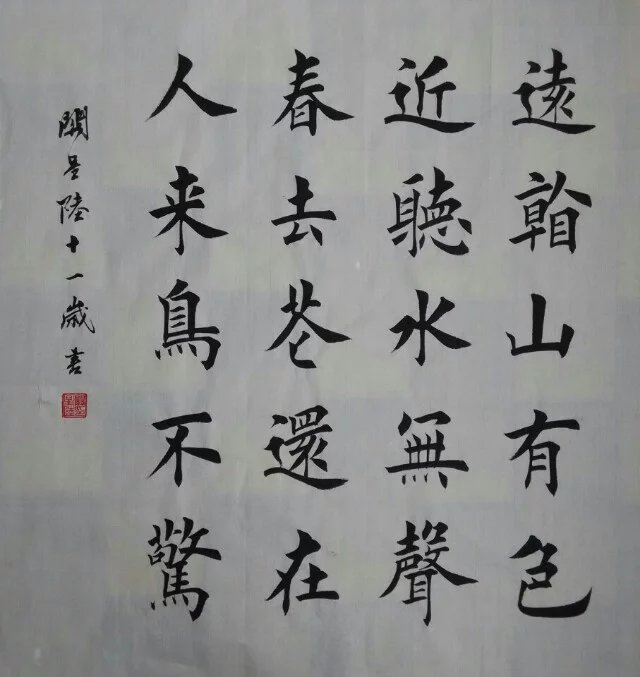 遠看山有色
近聽水無聲
春去花還在
人来鳥不驚
關 陸十一歲書